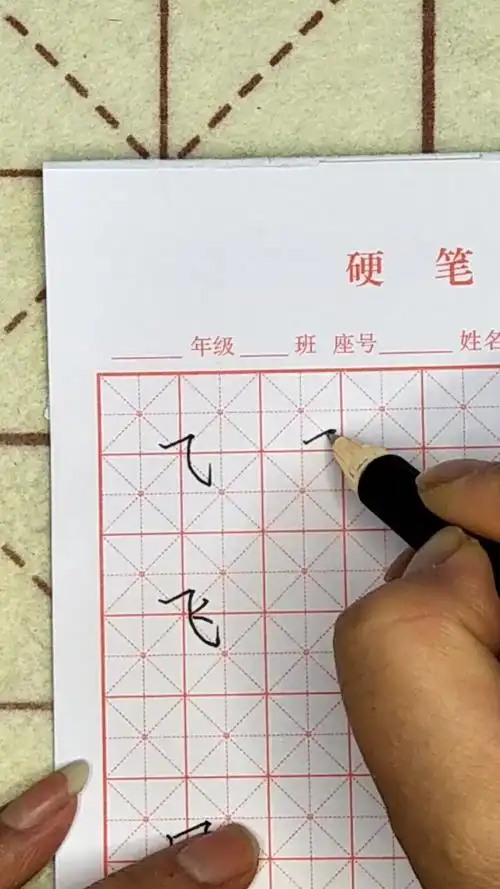 硬 笔
年级 班 座号 姓名
⺄
飞